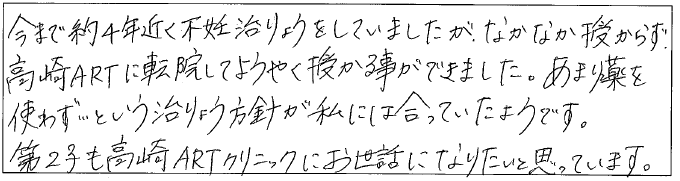 今まで約4年近く不妊治りょうをしていましたが、なかなか授からず、
高崎ARTに転院してようやく授かる事ができました。あまり薬を
使わず…という治りょう方針が私には合っていたようです。
第2子も高崎ARTクリニックにお世話になりたいと思っています。